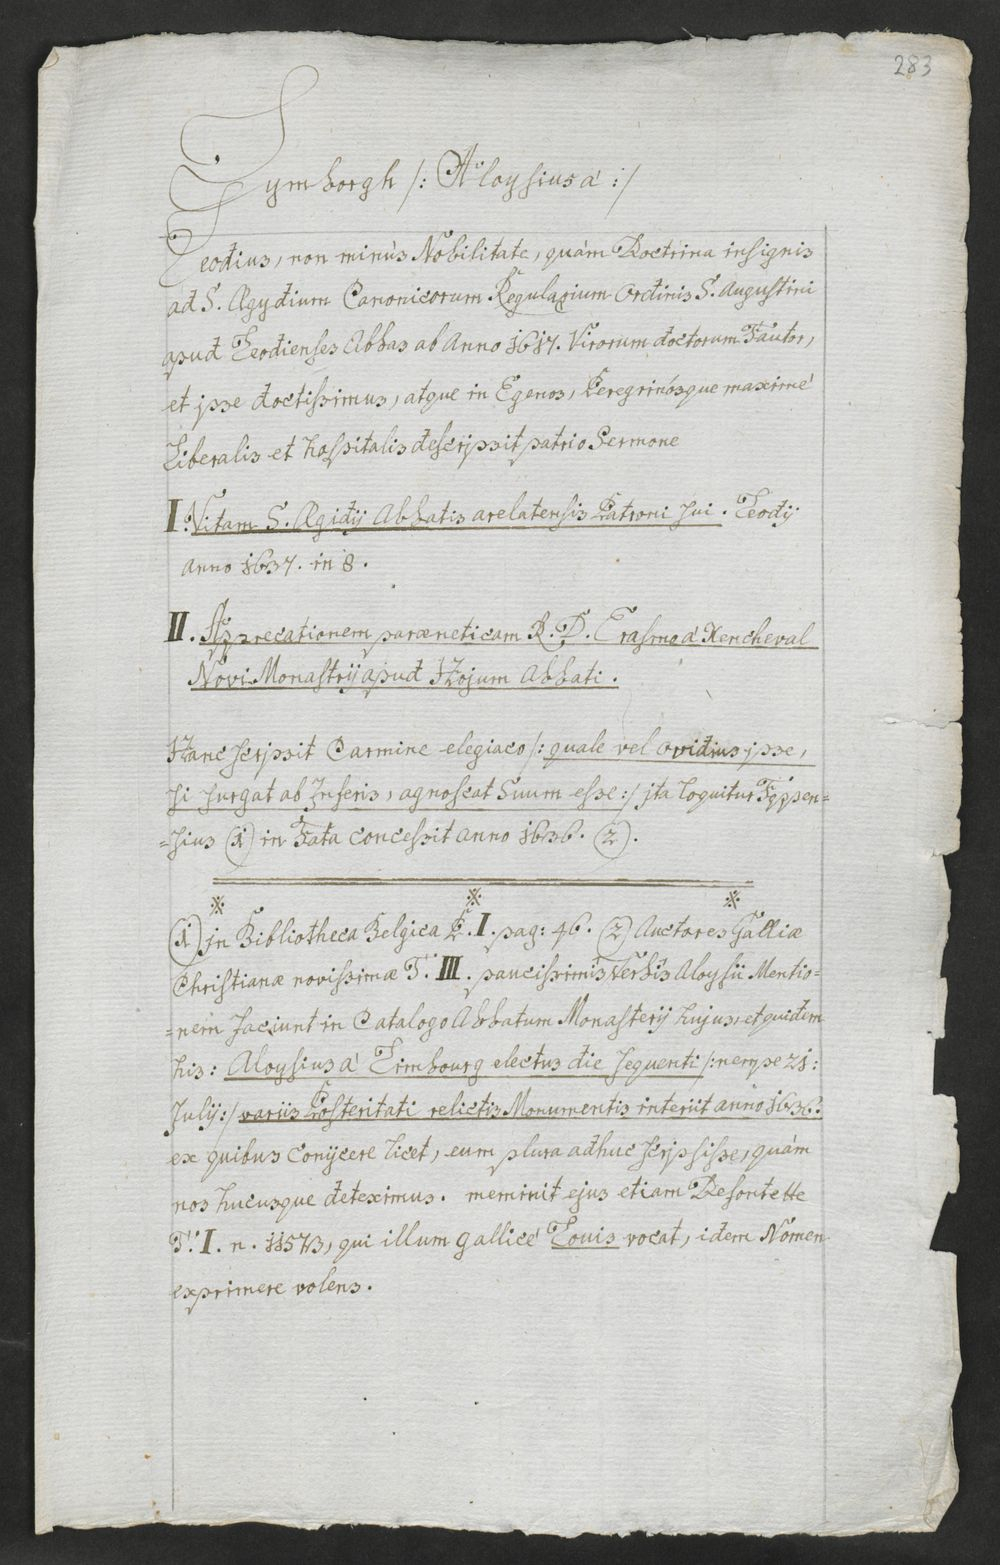 283
Lymborgh /: Aloysius à :/
Leodius, non minùs Nobilitate, quàm Doctrina insignis
ad S. Ægydium Canonicorum Regularium Ordinis S. Augustini
apud Leodienses Abbas ab Anno 1617. Virorum doctorum Fautor,
et jpse doctissimus, atque in Egenos, Peregrinósque maximè
Liberalis et hospitalis descripsit patrio Sermone
I. Vitam S. Ægidij Abbatis arelatensis Patroni sui. Leodij
anno 1637. in 8.
II. Apprecationem paræneticam R. D. Erasmo à Kencheval
Novi Monastrij apud Hojum Abbati.
Hanc scripsit Carmine elegiaco /: quale vel ovidius jpse,
si surgat ab Inferis, agnoscat Suum esse :/ jta loquitur Foppen=
=sius (1) in Fata concessit anno 1636. (2).
(1) jn Bibliotheca Belgica P. I. pag: 46. (2) Auctores Galliæ
Christianæ novissimæ T. III. paucissimis Verbis Aloysii Mentio=
=nem faciunt in Catalogo Abbatum Monasterij hujus, et quidem
his: Aloysius à Limbourg electus die sequenti /: nempe 21:
Julij :/ variis Posteritati relictis Monumentis interiit anno 1636:
ex quibus conijcere licet, eum plura adhuc scripsisse, quàm
nos hucusque deteximus. meminit ejus etiam Defontette
T. I. n. 11573, qui illum gallicè Louis vocat, idem Nomen
exprimere volens.